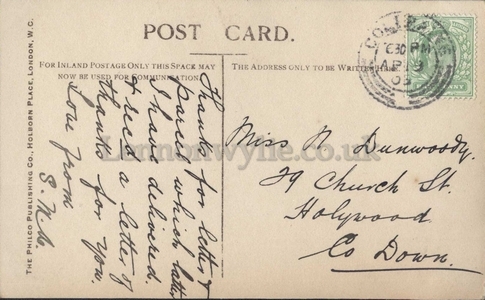 POST CARD.
FOR INLAND POSTAGE ONLY THIS SPACE MAY
NOW BE USED FOR COMMUNICATION.
THE ADDRESS ONLY TO BE WRITTEN HERE.
THE PHILCO PUBLISHING CO., HOLBORN PLACE, LONDON, W.C.
Thanks for letter &
parcel which latter
I have delivered.
& recd a letter of
thanks for you.
Love from
Miss N Dunwoody.
29 Church St.
Holywood
Co Down.
Lennonwylie.co.uk